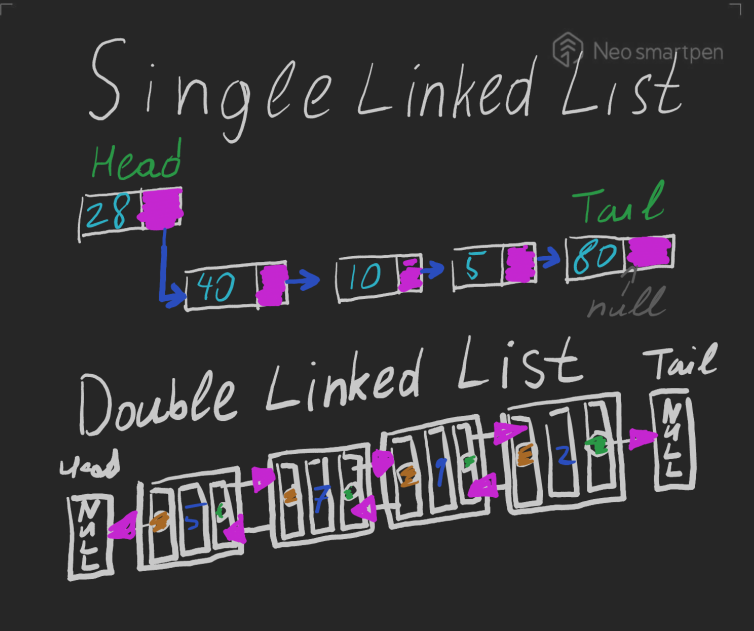 Neo smartpen
Single Linked List
Head
28
Tail
40
10
5
80
null
Double Linked List
Tail
Head
NULL
5
7
1
2
NULL